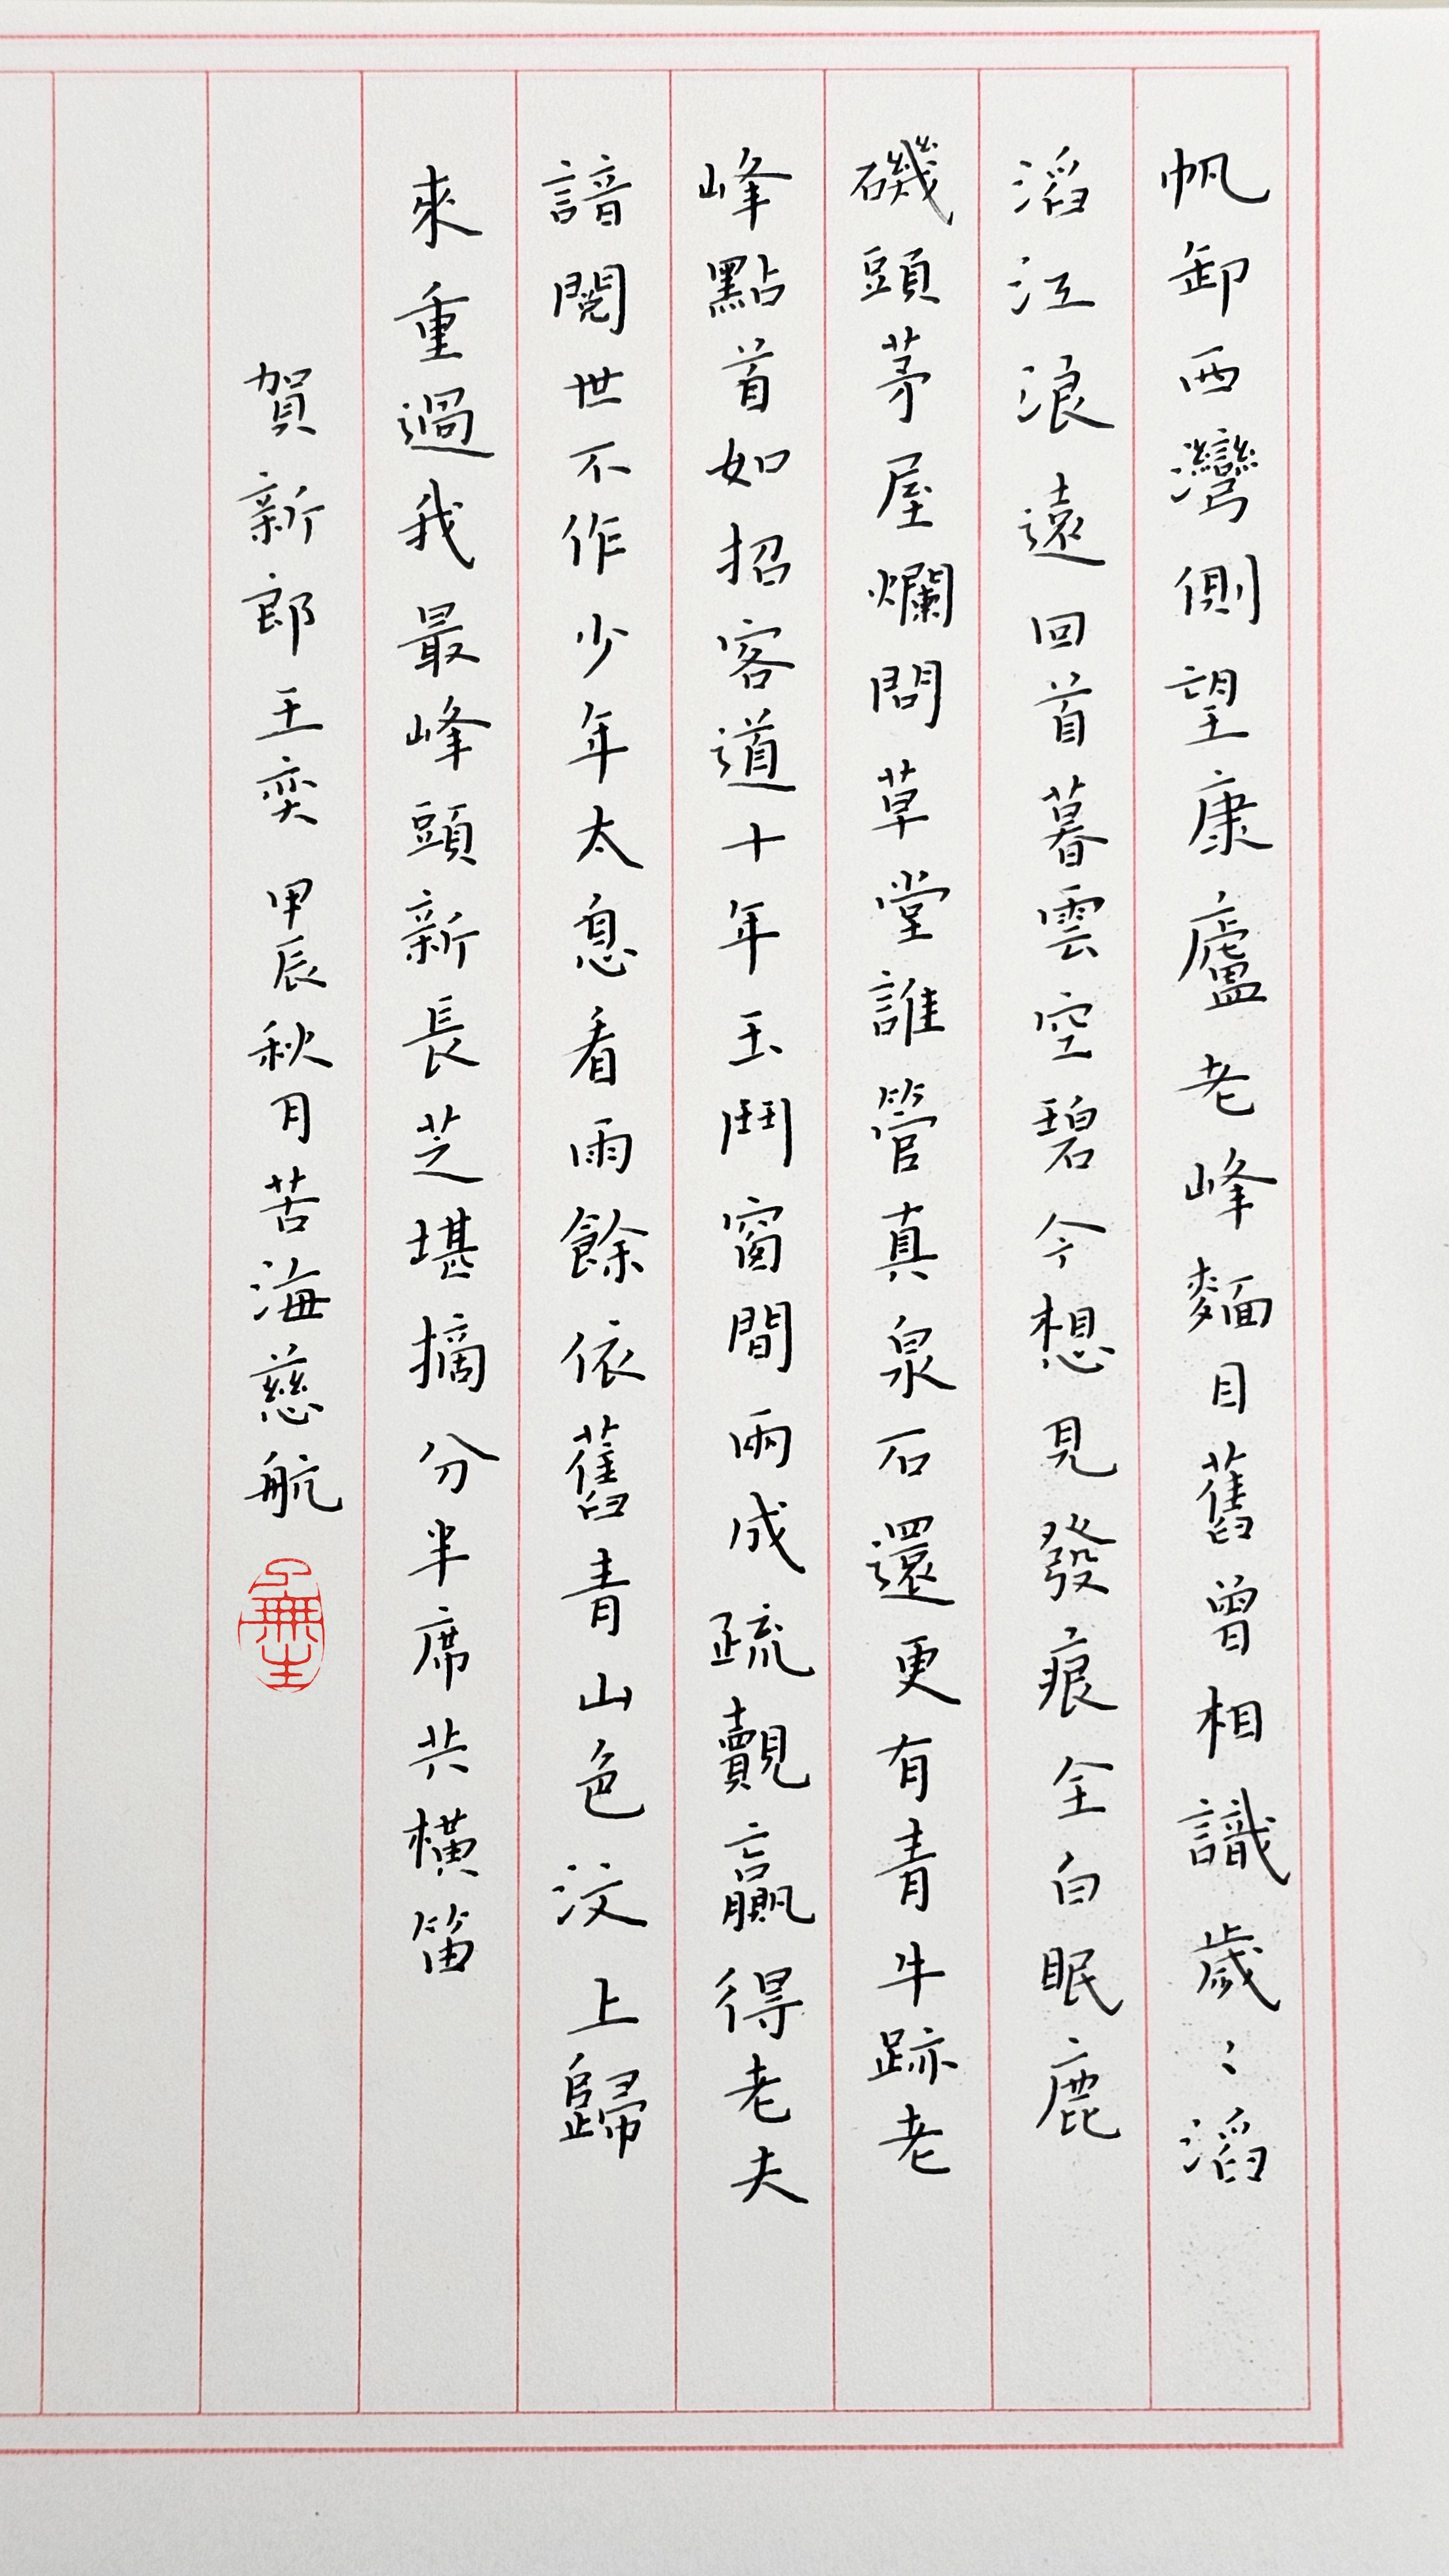 帆卸西灣側望康廬老峰麵目舊曾相識歲〻滔
滔江浪遠回首暮雲空碧今想見發痕全白眠鹿
磯頭茅屋爛問草堂誰管真泉石還更有青牛跡老
峰點首如招客道十年玉鬥窗間兩成疏覿贏得老夫
諳閱世不作少年太息看雨餘依舊青山色汶上歸
來重過我最峰頭新長芝堪摘分半席共橫笛
賀新郎王奕甲辰秋月苦海慈航